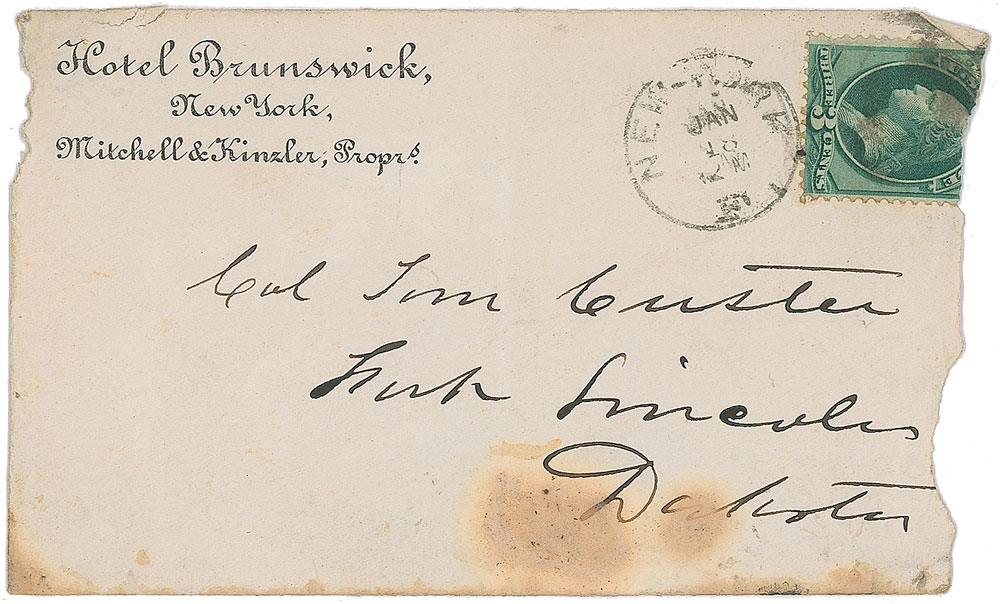 Hotel Brunswick,
New York,
Mitchell & Kinzler, Proprs.
NEW-YORK
JAN
THREE 3 CENTS
Col Tom Custer
Fort Lincoln
Dakota